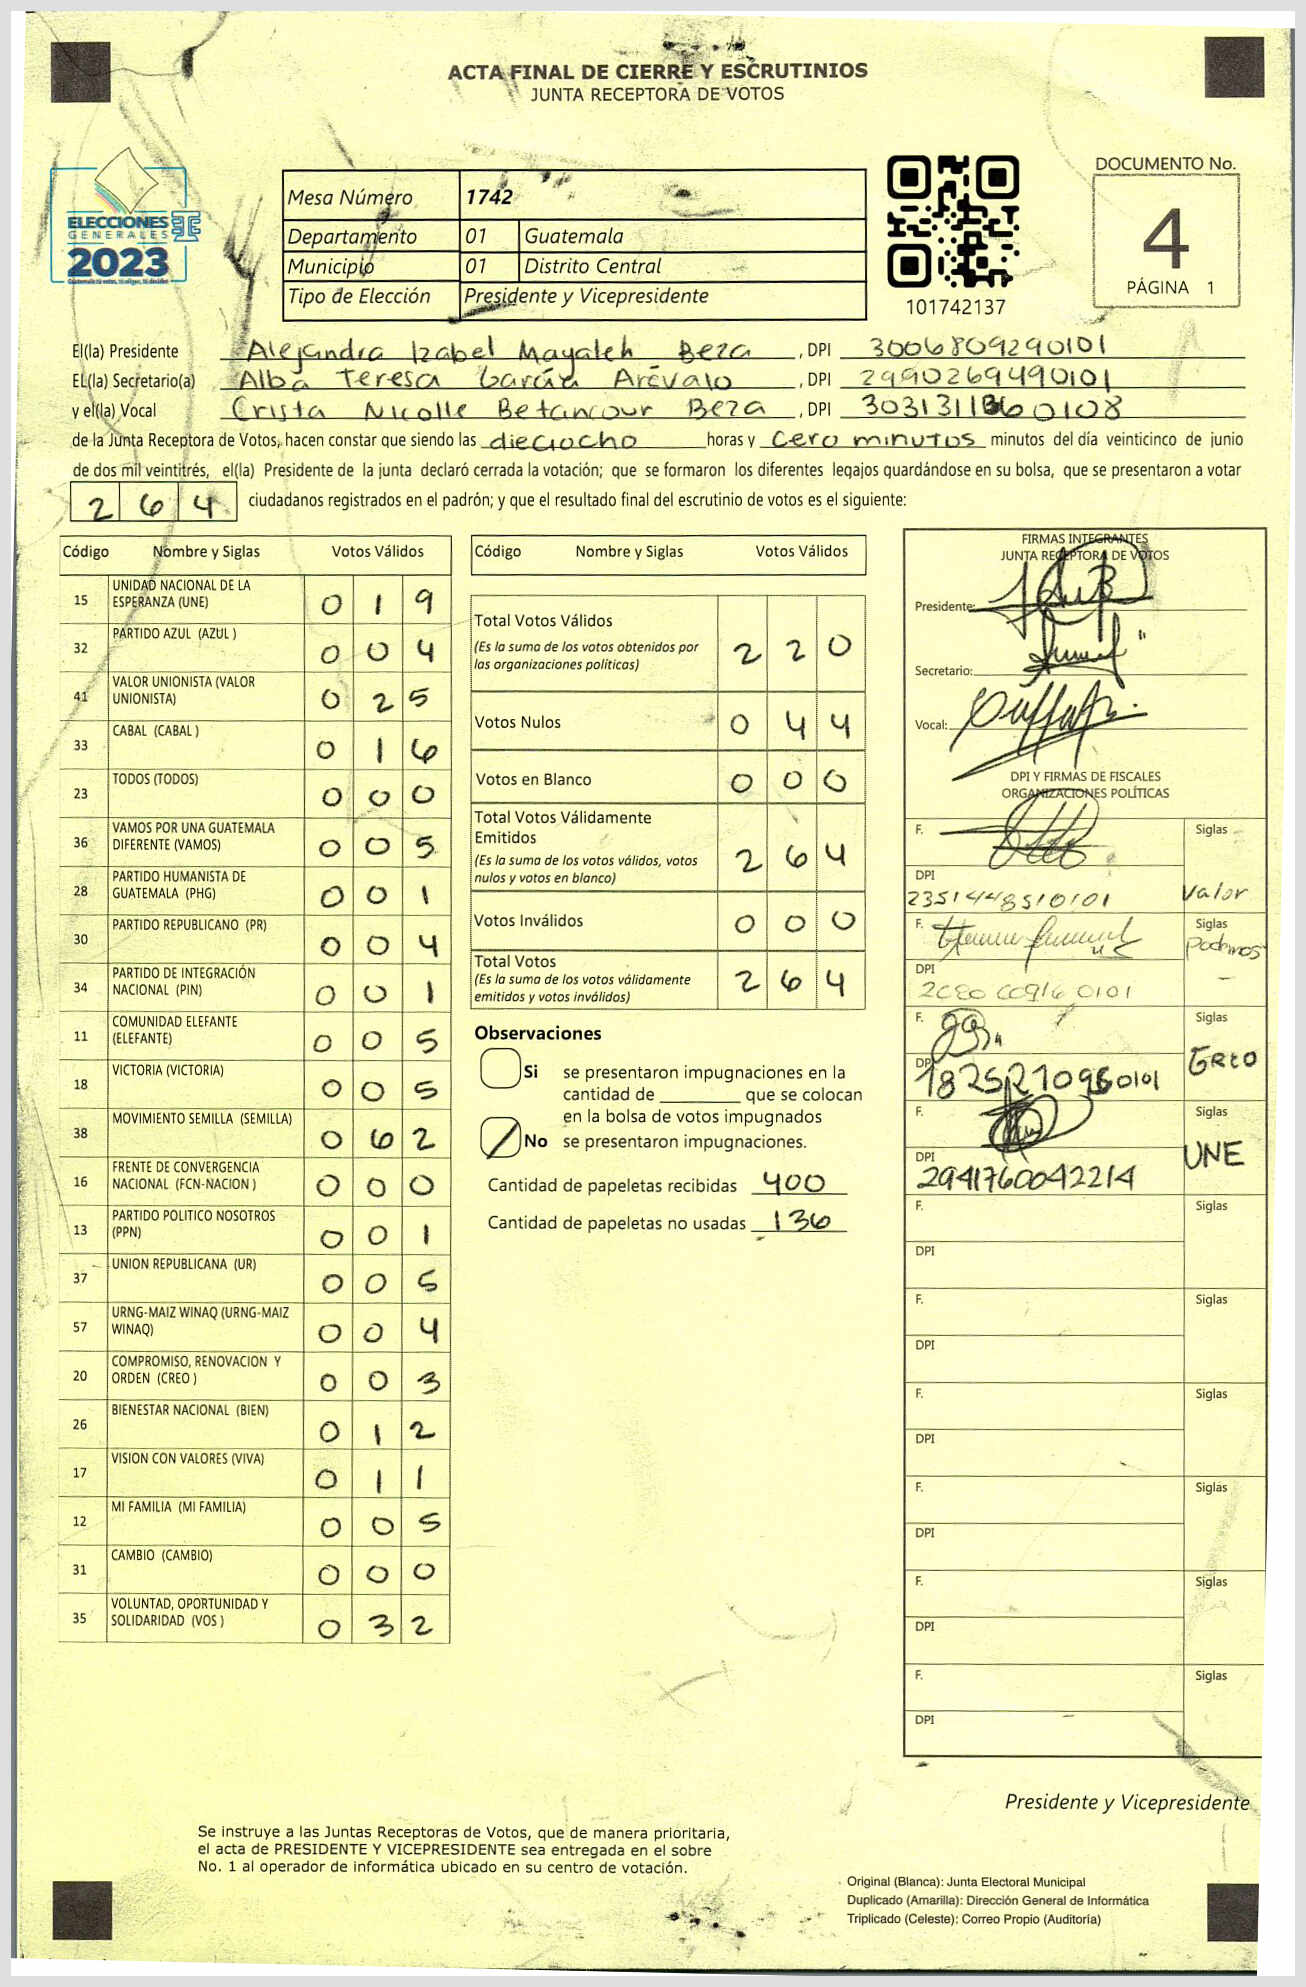 ACTA FINAL DE CIERRE Y ESCRUTINIOS
JUNTA RECEPTORA DE VOTOS
ELECCIONES
GENERALES
2023
Mesa Número 1742
Departamento 01 Guatemala
Municipio 01 Distrito Central
Tipo de Elección Presidente y Vicepresidente
101742137
DOCUMENTO No.
4
PÁGINA 1
El(la) Presidente Alejandra Izabel Mayaleh Beza, DPI 3006809290101
EL(la) Secretario(a) Alba Teresa García Arévalo, DPI 2990269490101
y el(la) Vocal Crista Nicolle Betancour Beza, DPI
de la Junta Receptora de Votos, hacen constar que siendo las dieciocho horas y cero minutos minutos del día veinticinco de junio
de dos mil veintitrés, el(la) Presidente de la junta declaró cerrada la votación; que se formaron los diferentes legajos guardándose en su bolsa, que se presentaron a votar
264 ciudadanos registrados en el padrón; y que el resultado final del escrutinio de votos es el siguiente:
Código Nombre y Siglas Votos Válidos
15 UNIDAD NACIONAL DE LA ESPERANZA (UNE) 0 1 9
32 PARTIDO AZUL (AZUL ) 0 0 4
41 VALOR UNIONISTA (VALOR UNIONISTA) 0 2 5
33 CABAL (CABAL ) 0 1 6
23 TODOS (TODOS) 0 0 0
36 VAMOS POR UNA GUATEMALA DIFERENTE (VAMOS) 0 0 5
28 PARTIDO HUMANISTA DE GUATEMALA (PHG) 0 0 1
30 PARTIDO REPUBLICANO (PR) 0 0 4
34 PARTIDO DE INTEGRACIÓN NACIONAL (PIN) 0 0 1
11 COMUNIDAD ELEFANTE (ELEFANTE) 0 0 5
18 VICTORIA (VICTORIA) 0 0 5
38 MOVIMIENTO SEMILLA (SEMILLA) 0 6 2
16 FRENTE DE CONVERGENCIA NACIONAL (FCN-NACION ) 0 0 0
13 PARTIDO POLITICO NOSOTROS (PPN) 0 0 1
37 UNION REPUBLICANA (UR) 0 0 5
57 URNG-MAIZ WINAQ (URNG-MAIZ WINAQ) 0 0 4
20 COMPROMISO, RENOVACION Y ORDEN (CREO ) 0 0 3
26 BIENESTAR NACIONAL (BIEN) 0 1 2
17 VISION CON VALORES (VIVA) 0 1 1
12 MI FAMILIA (MI FAMILIA) 0 0 5
31 CAMBIO (CAMBIO) 0 0 0
35 VOLUNTAD, OPORTUNIDAD Y SOLIDARIDAD (VOS ) 0 3 2
Código Nombre y Siglas Votos Válidos
Total Votos Válidos 2 2 0
(Es la suma de los votos obtenidos por
las organizaciones políticas)
Votos Nulos 0 4 4
Votos en Blanco 0 0 0
Total Votos Válidamente
Emitidos 2 6 4
(Es la suma de los votos válidos, votos
nulos y votos en blanco)
Votos Inválidos 0 0 0
Total Votos 2 6 4
(Es la suma de los votos válidamente
emitidos y votos inválidos)
Observaciones
Si se presentaron impugnaciones en la
cantidad de ________ que se colocan
en la bolsa de votos impugnados
No se presentaron impugnaciones.
Cantidad de papeletas recibidas 400
Cantidad de papeletas no usadas 136
FIRMAS INTEGRANTES
JUNTA RECEPTORA DE VOTOS
Presidente:
Secretario:
Vocal:
DPI Y FIRMAS DE FISCALES
ORGANIZACIONES POLÍTICAS
F. Siglas
DPI
2351448510101 Valor
F. Siglas
Podemos
DPI
F. Siglas
DPI
F. Siglas
UNE
DPI
2941760042214
F. Siglas
DPI
F. Siglas
DPI
F. Siglas
DPI
F. Siglas
DPI
F. Siglas
DPI
F. Siglas
DPI
Presidente y Vicepresidente
Se instruye a las Juntas Receptoras de Votos, que de manera prioritaria,
el acta de PRESIDENTE Y VICEPRESIDENTE sea entregada en el sobre
No. 1 al operador de informática ubicado en su centro de votación.
Original (Blanca): Junta Electoral Municipal
Duplicado (Amarilla): Dirección General de Informática
Triplicado (Celeste): Correo Propio (Auditoría)